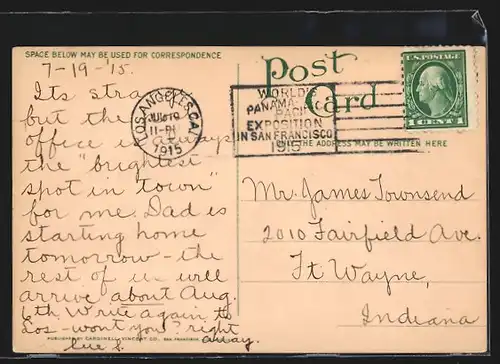 SPACE BELOW MAY BE USED FOR CORRESPONDENCE
Post
Card
U.S. POSTAGE
1 CENT 1
LOS ANGELES, CAL.
JUL 19
11-PM
1915
WORLD'S
PANAMA
PACIFIC
EXPOSITION
IN SAN FRANCISCO
1915
THE ADDRESS MAY BE WRITTEN HERE
7-19-'15.
Its strange
but the
office is always
the "brightest
spot in town"
for me. Dad is
starting home
tomorrow - the
rest of us will
arrive about Aug.
6th. Write again to
Los - won't you? right
away.
Sue S.
Mr. James Townsend
2010 Fairfield Ave.
Ft Wayne,
Indiana
PUBLISHED BY CARDINELL-VINCENT CO., SAN FRANCISCO